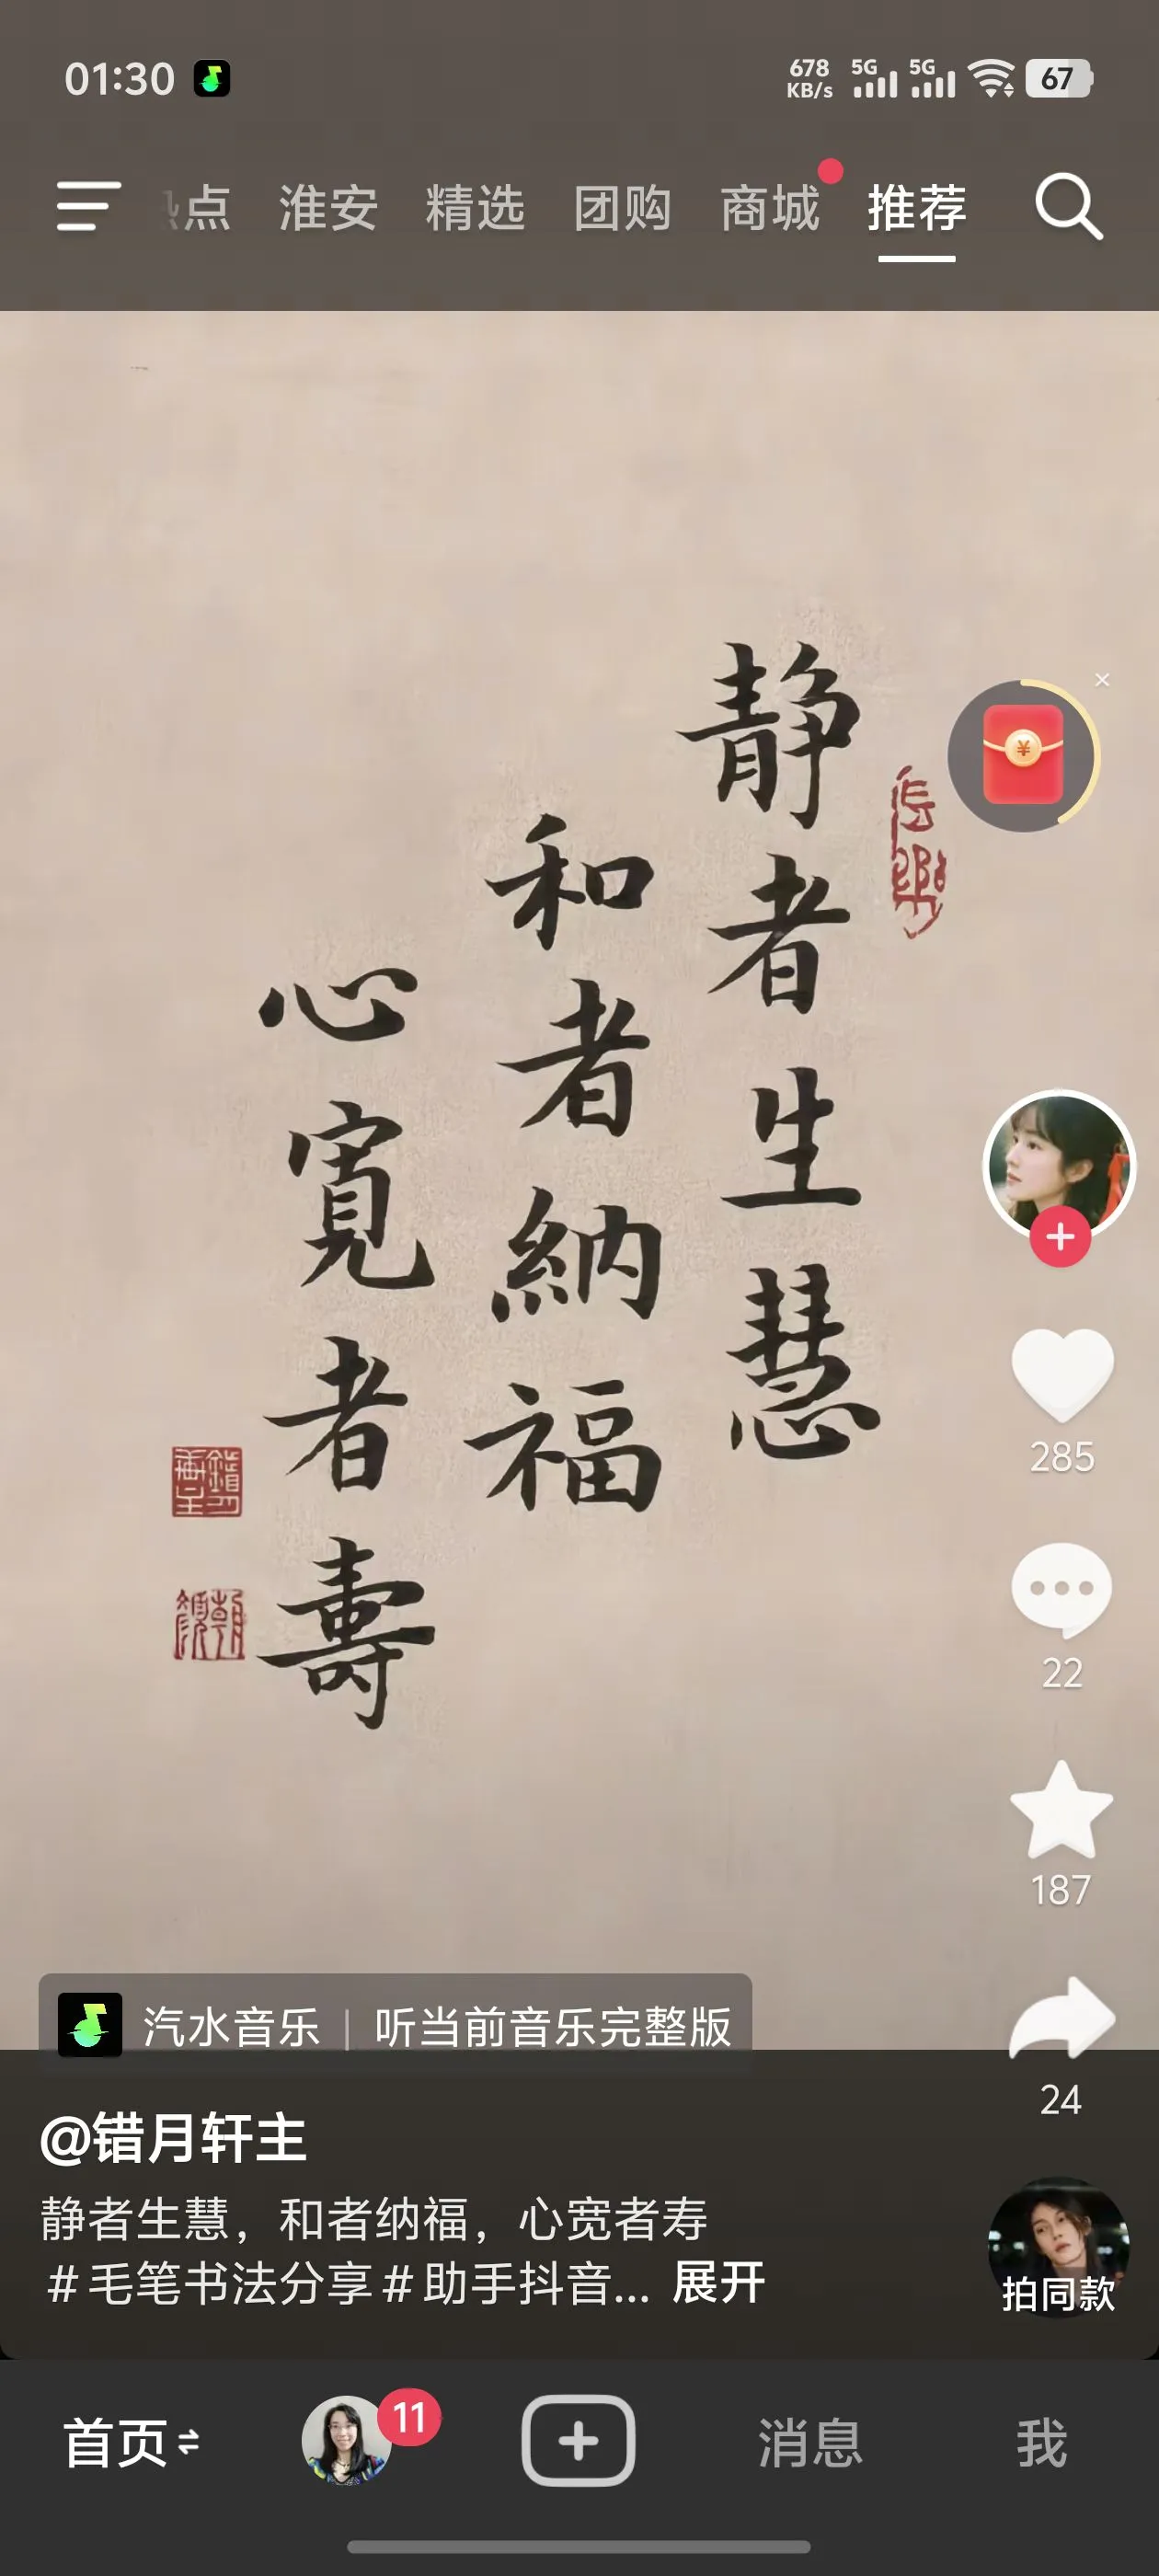 01:30
678 KB/s 5G 5G 67
点 淮安 精选 团购 商城 推荐
静者生慧
和者納福
心寬者壽
285
22
187
汽水音乐 | 听当前音乐完整版
24
@错月轩主
静者生慧，和者纳福，心宽者寿
#毛笔书法分享#助手抖音... 展开
拍同款
首页 11 消息 我